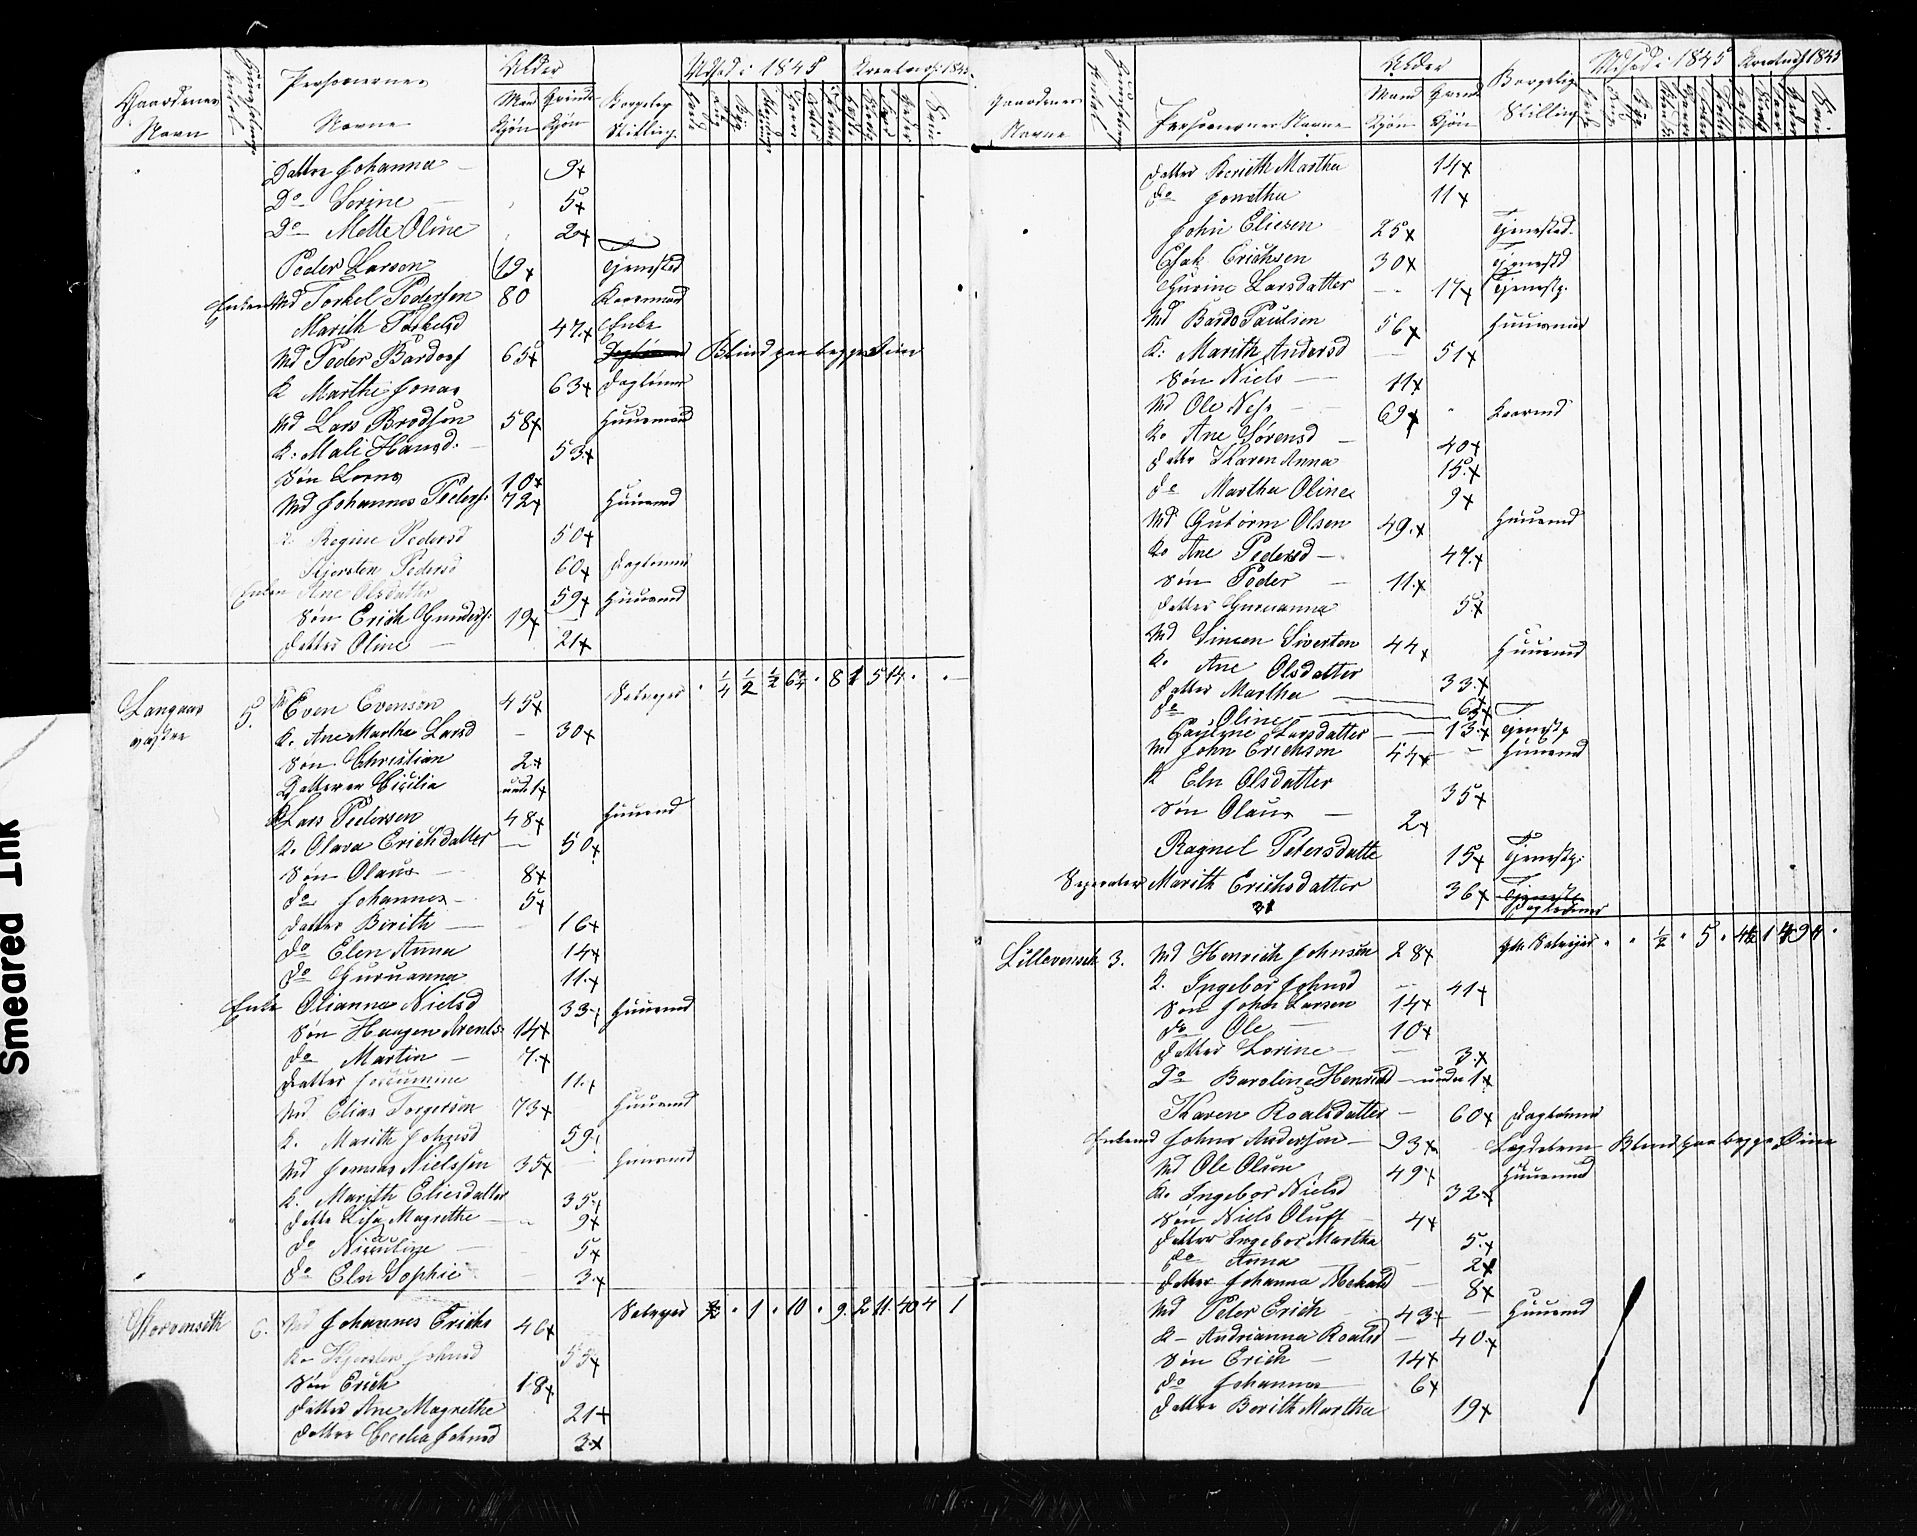 Smeared Ink
Gaardenes Navn
Personernes Navne
Alder
Mand Kjön Qvinde Kjön
Borgelig Stilling
Udsæd i 1845
Kreaturh: 1845
Datter Johanna 9x
Do Sorine 5x
Do Mette Oline 2x
Peder Larsen 19x Tjenested
Enkem Md Torkel Pedersen 80 Kaarmand
Marith Torkelsd 47x Enke
Md Peder Bardoes 65x Blind paa begge Øine
K Marthe Jonas 63x Dagløner
Md Lars Brodsen 58x Huusmand
K. Mali Hansd. 53x
Søn Lorns 10x
Md Johannes Peders: 72x Huusmd
K. Regine Pedersd 50x
Kjersten Pedersd 60x Dagløner
Enken Ane Olsdatter 59x Huusmd
Søn Erich Gunders: 19x
Datter Oline 21x
Langaas 5. Even Evensen 45x Selveyer 1/4 1/2 1/2 6 3/4 8 1 5 14
K. Ane Marthe Larsd 30x
Søn Christian 2x
Datteren Cicilia und 1x
Lars Pedersen 48x Huusmd
K. Olava Erichdatter 50x
Søn Olaus 8x
do Johannes 5x
Datter Berith 16x
do Elen Anna 14x
do Guruanna 11x
Enke Olianna Nielsd 33x Huusmd
Søn Haagen Arents 14x
do Martin 7x
Datter 11x
Md Elias Torgersen 73x Huusmd
K. Marith Johnsd 59
Md Jonas Nielssen 35x Huusmd
K. Marith Eliesdatter 35x
Datte Lisa Magrethe 9x
do 5x
do Eln Sophie 3x
Storvensith 6. Md Johannes Erichs 46x Selveyer 1 10 9 2 11 40 4 1
K. Kjersten Johnsd 55x
Søn Erich 18x
Datter Ane Magrethe 21x
Datter Cecelia Johnsd 3x
Gaardenes Navne
Personernes Navne
Alder
Mand Kjön Qvind Kjön
Borgelig Stilling
Udsæd i 1845
Kreaturh 1845
Datter Berieth Martha 14x
do Jonetha 11x
John Eliesen 25x Tjenested.
Isak Erichsen 30x Tjenestd
Gurine Larsdatter 17x Tjenestp.
Md Bardo Paulsen 56x Huusmd
K: Marith Andersd 51x
Søn Niels 11x
Md Ole Nels 69x Kaarmd
K. Ane Sørensd 40x
Datte Karen Anna 15x
do Martha Oline 9x
Md Gutorm Olsen 49x Huusmd
K. Ane Pedersd 47x
Søn Peder 11x
Datter Guruanna 5x
Md Simen Siverten 44x Huusmd
K. Ane Olsdatter 33x
Datter Martha 6x
do Oline 3x
Larsdatter 13x Tjenestp
Md John Erichson 44x Huusmd
K Eln Olsdatter 35x
Søn Olaus 2x
Ragnel Petersdatte 15x Tjenestp:
Seperater Marith Erichsdatter 36x Dagløner
31
Lillevensith 3. Md Henrich Johnsen 28x Gdb Selveyer 1/2 5 4 1/2 1 9 4
K. Ingebor Johnsd 41x
Søn John Larsen 14x
do Ole 10x
Datter Lorine 3x
Do Baroline Henricd under 1x
Karen Roalsdatter 60x Dagløner
Enkemd Johns Andersen 93x Lægdslem Blind paa begge Øine
Md Ole Olsen 49x Huusmd
K. Ingebor Nielsd 32x
Søn Niels Oluff 4x
Datter Ingebor Martha 5x
do Anna 2x
Datter Johanna 8x
Md Peter Erich 43x Huusmd
K Andrianna Roalsd 40x
Søn Erich 14x
do Johannes 6x
Datter Berith Martha 19x